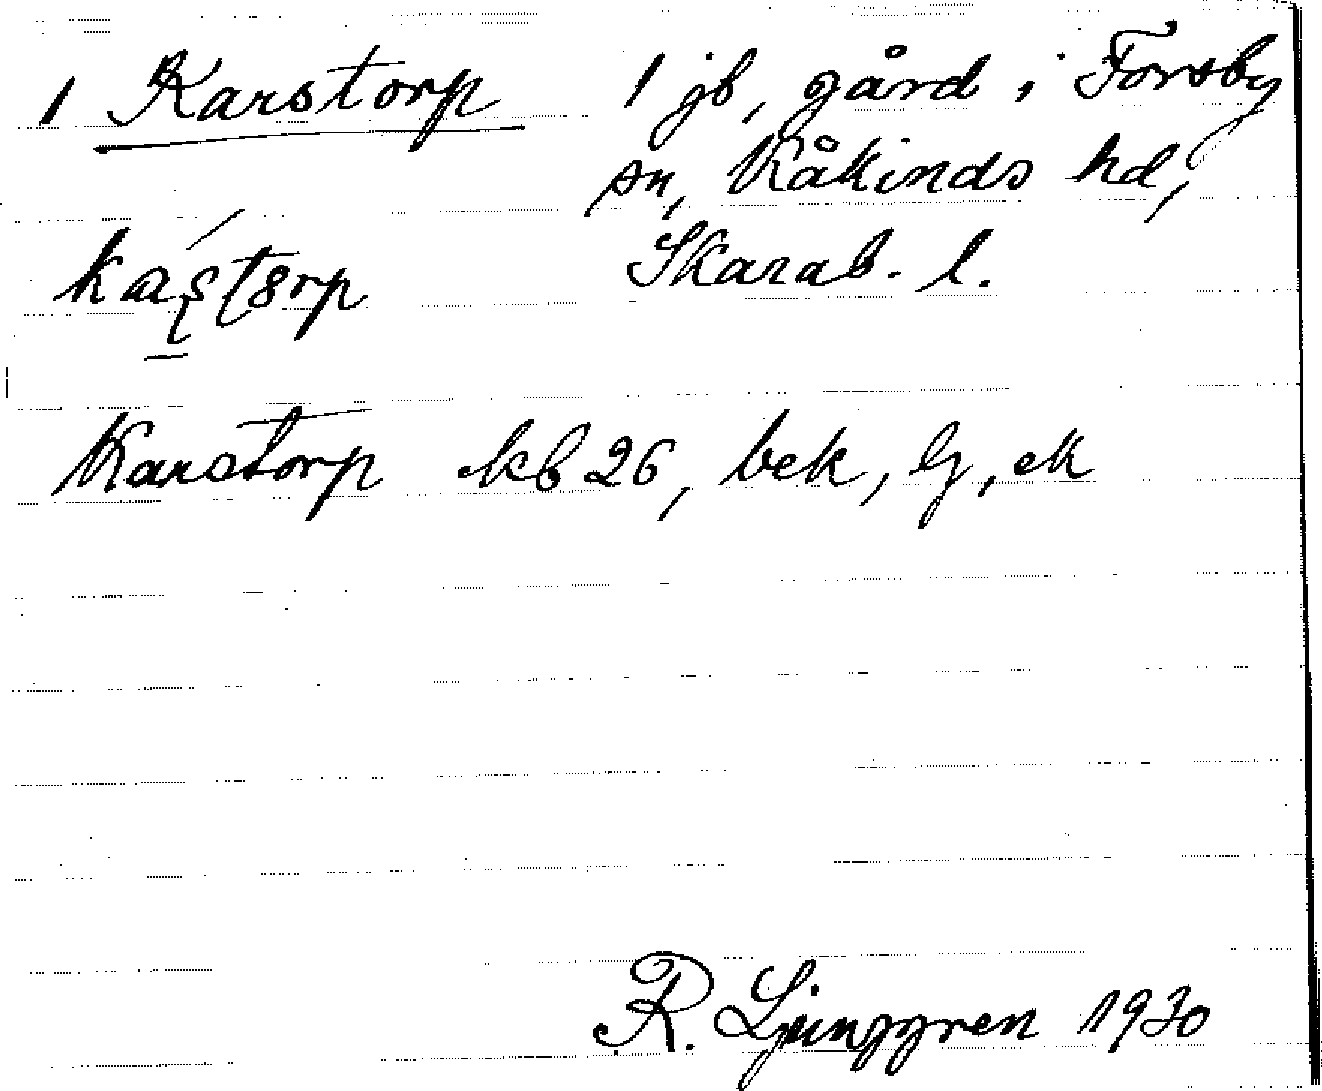 1 Karstorp 1 jb, gård i Forsby
sn, Kåkinds hd,
Skarab. l.
Karstorp kb 26, bek, lg, ek
R. Ljunggren 1930